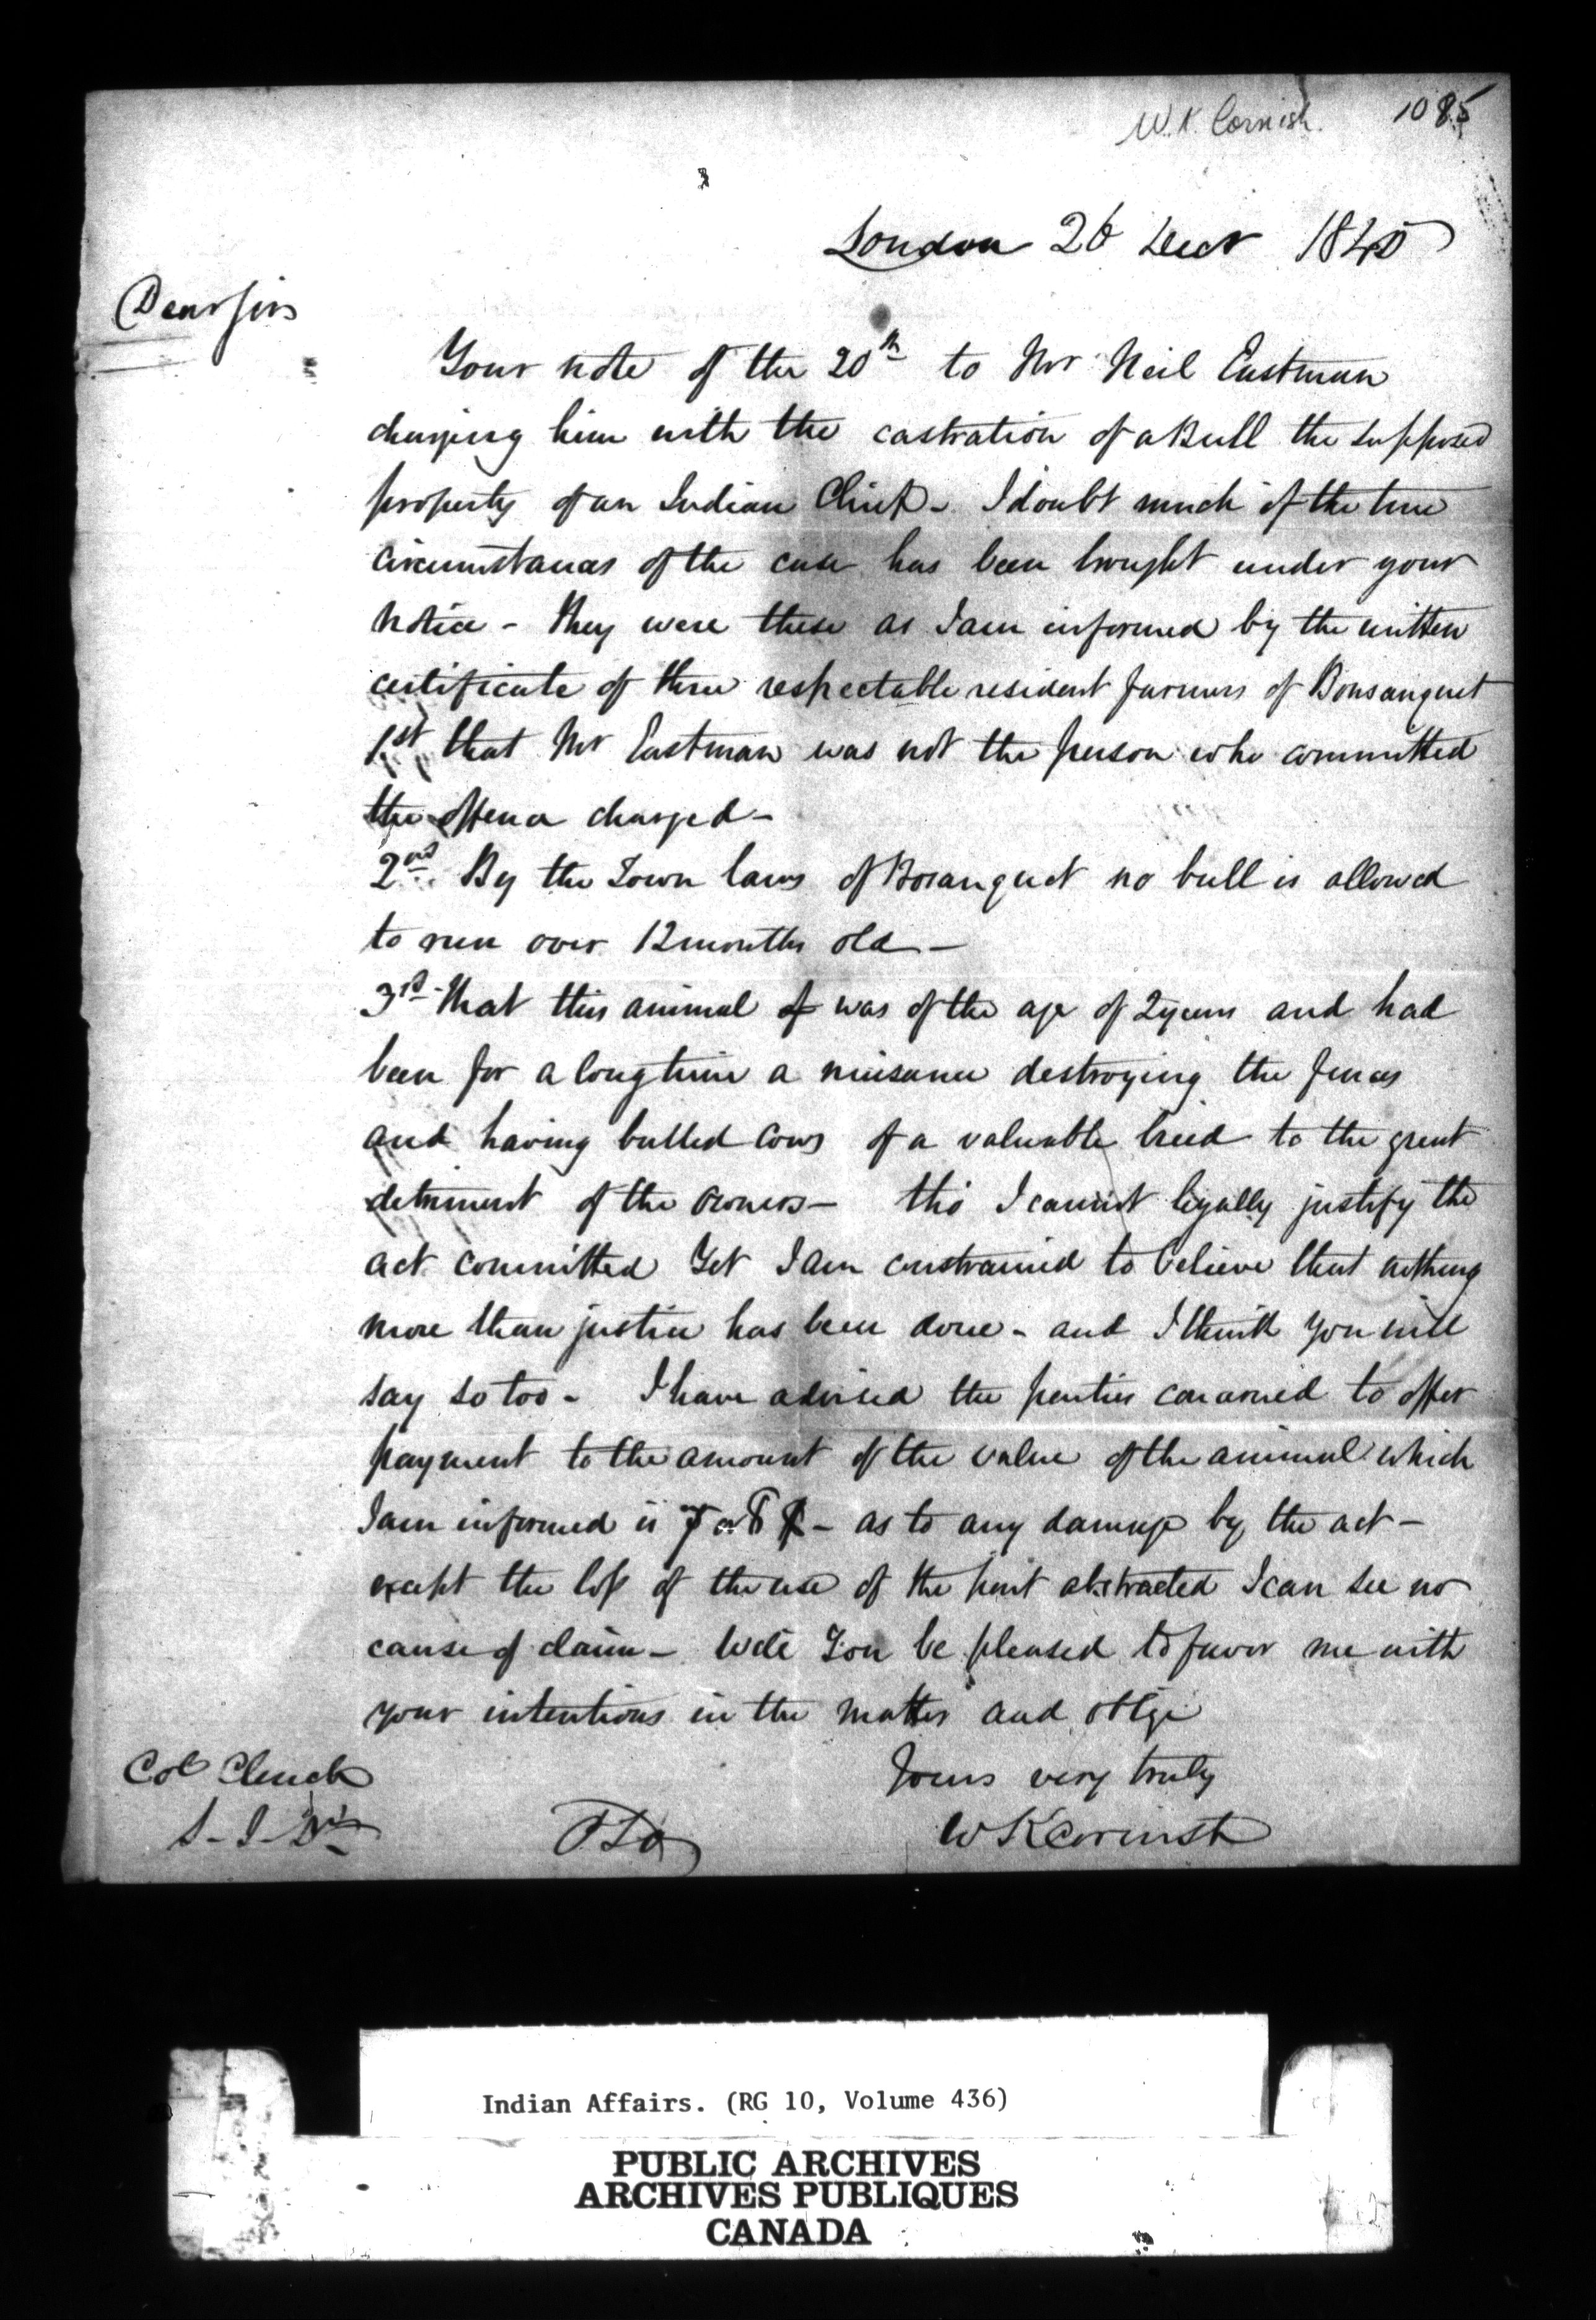 W.K. Cornish. 1085
London 26 Decr 1845
Dear Sir
Your note of the 20th to Mr Neil Eastman
charging him with the castration of a Bull the supposed
property of an Indian Chief - I doubt much if the true
circumstances of the case has been brought under your
notice - they were these as I am informed by the written
certificate of three respectable resident farmers of Bonsanquet
1st that Mr Eastman was not the person who committed
the offence charged -
2nd By the Town laws of Bosanquet no bull is allowed
to run over 12 months old -
3rd That this animal of was of the age of 2 years and had
been for a long time a nuisance destroying the fences
and having bulled Cows of a valuable breed to the great
detriment of the owners - tho' I cannot legally justify the
act committed Yet I am constrained to believe that nothing
more than justice has been done - and I think you will
say so too - I have advised the parties concerned to offer
payment to the amount of the value of the animal which
I am informed is 7 or 8 $ - as to any damage by the act -
except the loss of the use of the part abstracted I can see no
cause of claim - Will You be pleased to favor me with
your intentions in the matter and oblige
Yours very truly
W K Cornish
Col Clench
S - I -
PTO
Indian Affairs. (RG 10, Volume 436)
PUBLIC ARCHIVES
ARCHIVES PUBLIQUES
CANADA